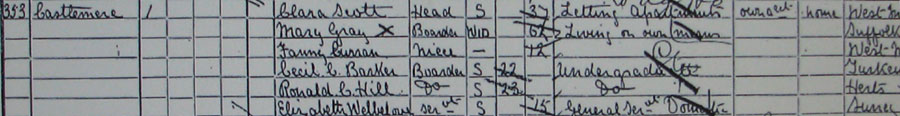 353 Castlemere 1 Clara Scott Head S 37 Letting Apartments own acct home West
Mary Gray X Boarder Wid 62 Living on own means Suffolk
Niece — 12 West
Cecil C. Barker Boarder S 22 Undergrad Turkey
Ronald C. Hill Do S 23 Do Herts
Elizabeth Servt S 15 General Servt Domestic